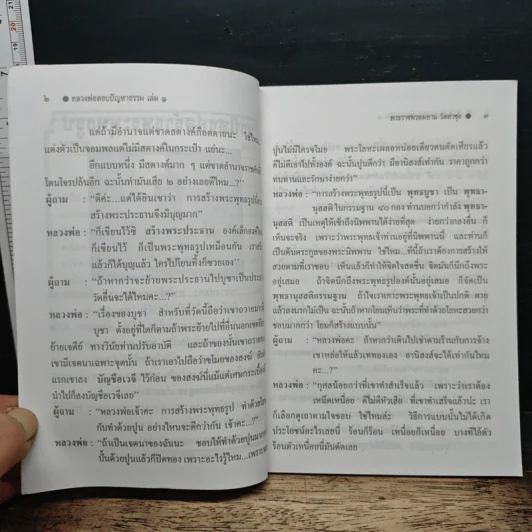 ๒ ● หลวงพ่อตอบปัญหาธรรม เล่ม ๑
แต่ถ้ามีอำนาจแต่ขาดสตางค์ก็อดตายนะ ใช่ไหม
แต่งตัวเป็นจอมพลแต่ไม่มีสตางค์ในกระเป๋า แย่นะ...
อีกแบบหนึ่ง มีสตางค์มาก ๆ แต่ขาดอำนาจราชศักดิ์
โดนโจรปล้นอีก ฉะนั้นทำมันเสีย ๒ อย่างเลยดีไหม...?"
ผู้ถาม : "ดีค่ะ...แต่ได้ยินเขาว่า การสร้างพระพุทธรูปนี่
สร้างพระประธานจึงมีบุญมาก"
หลวงพ่อ : "ก็เขียนไว้ซิ สร้างพระประธาน องค์เล็กองค์
ก็เขียนไว้ ก็เป็นพระพุทธรูปเหมือนกัน
แล้วก็ได้บุญแล้ว ใครไปโยนทิ้งก็ซวยเอง"
ผู้ถาม : "ถ้าหากว่าจะย้ายพระประธานไปบูชาเป็นประ
วัดอื่นจะได้ไหมคะ...?"
หลวงพ่อ : "เรื่องของบูชา สำหรับที่วัดนี้ถือว่าเขาถวายมา
บูชา ตั้งอยู่ที่ใดก็ตามถ้าพระย้ายไปที่อื่นนอกเขต
ย้ายเจดีย์ ทางวินัยท่านปรับอาบัติ และถ้าของนั้นเขาถวาย
เขามีเจตนาเฉพาะจุดนั้น ถ้าเราเอาไปถือว่าขโมยของสงฆ์
แรกเขาลง บัญชีอเวจี ไว้ก่อน ของสงฆ์นี่แม้แต่เศษกระเบื้อง
นำไปก็ลงบัญชีอเวจีเลย"
ผู้ถาม : "หลวงพ่อเจ้าคะ การสร้างพระพุทธรูป ทำด้วยโลหะ
กับทำด้วยปูน อย่างไหนจะดีกว่ากัน เจ้าคะ...?"
หลวงพ่อ : "ถ้าเป็นเจตนาของฉันนะ ชอบให้ทำด้วยปูน
ปั้นด้วยปูนแล้วก็ปิดทอง เพราะอะไรรู้ไหม...เพราะ
พระราชพรหมยาน วัดท่าซุง ● ๓
ปูนไม่มีใครขโมย พระโลหะเผลอหน่อยเดียวคนตัดเศียรแล้ว
ดีไม่ดีเอาไปทั้งองค์ ฉะนั้นปูนดีกว่า มีอานิสงส์เท่ากัน ราคาถูกกว่า
ทนทานและรักษาง่ายกว่า"
หลวงพ่อ : "การสร้างพระพุทธรูปนี่เป็น พุทธบูชา เป็น พุทธา-
นุสสติ ในกรรมฐาน ๔๐ กอง ท่านบอกว่ากำลัง พุทธา-
นุสสติ เป็นเหตุให้เข้าถึงนิพพานได้ง่ายที่สุด ง่ายกว่ากองอื่น ก็
เห็นจะจริง เพราะว่าพระพุทธเจ้าท่านอยู่ที่นิพพานนี่ และท่านก็
เป็นต้นตระกูลของพระนิพพาน ใช่ไหม...ทีนี้ถ้าเราต้องการสร้างให้
สวยตามที่เราชอบ เห็นแล้วก็ทำให้จิตใจสดชื่น จิตมันก็นึกถึงพระ
อยู่เสมอ ถ้าจิตนึกถึงพระพุทธรูปองค์นั้นอยู่เสมอ ก็จัดเป็น
พุทธานุสสติกรรมฐาน ถ้าใจเราเกาะพระพุทธเจ้าเป็นปกติ ตาย
แล้วลงนรกไม่เป็น ฉะนั้นถ้าหากโยมเห็นว่าพระที่ทำด้วยโลหะสวยกว่า
ชอบมากกว่า โยมก็สร้างแบบนั้น"
ผู้ถาม : "หลวงพ่อคะ ถ้าหากว่าเดินไปเช่าตามร้านกับการจ้าง
เขาหล่อให้แล้วเททองเอง อานิสงส์จะได้เท่ากันไหม
คะ...?"
หลวงพ่อ : "กุศลน้อยกว่าที่เขาทำสำเร็จแล้ว เพราะว่าเราต้อง
เหนื่อยเหนื่อย ไม่ดีหัวเสีย ที่เขาทำเสร็จแล้วน่ะ เรา
ก็เลือกดูเอาตามใจชอบ ใช่ไหมล่ะ วิธีการแบบนั้นไม่ได้เกิด
ประโยชน์อะไรเลยนี่ ร้อนก็ร้อน เหนื่อยก็เหนื่อย บางทีไอ้ตัว
ร้อนตัวเหนื่อยนี่มันตัดเลย